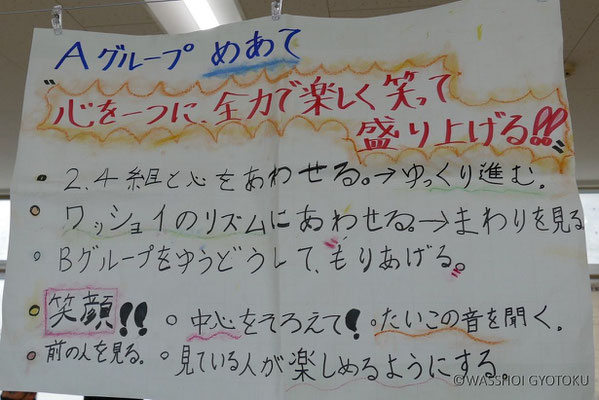 Aグループ めあて
"心を一つに、全力で楽しく笑って
盛り上げる!!"
・2.4組と心をあわせる。→ゆっくり進む。
・ワッショイのリズムにあわせる。→まわりを見る
・Bグループをゆうどうして、もりあげる。
・笑顔!! ・中心をそろえて! ・たいこの音を聞く。
・前の人を見る。 ・見ている人が楽しめるようにする。
©WASSHOI GYOTOKU